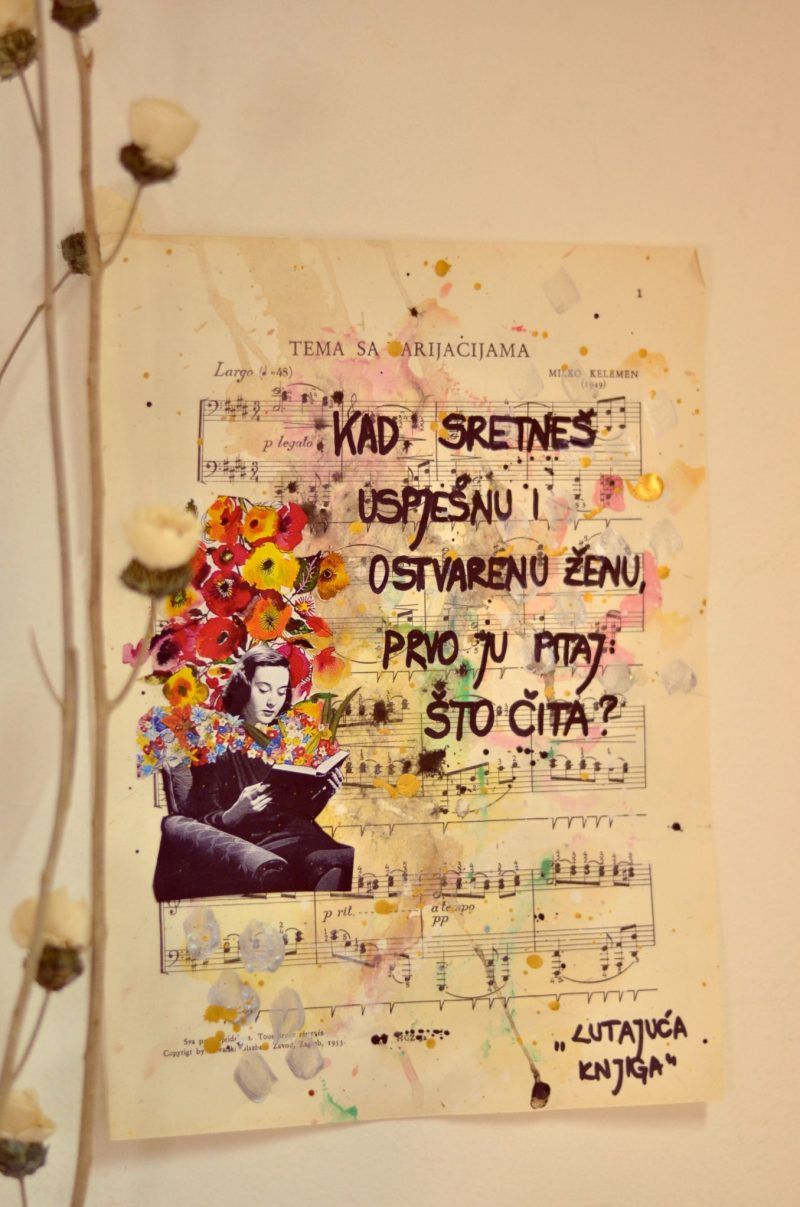 1
TEMA SA VARIJACIJAMA
Largo
48)
MILKO KELEMEN
(1949)
p legato
KAD SRETNEŠ
USPJEŠNU I
OSTVARENU ŽENU,
PRVO JU PITAJ:
ŠTO ČITA?
p rit.
a tempo
pp
Copyrigt by
Zavod, Zagreb, 1953.
„LUTAJUĆA
KNJIGA“